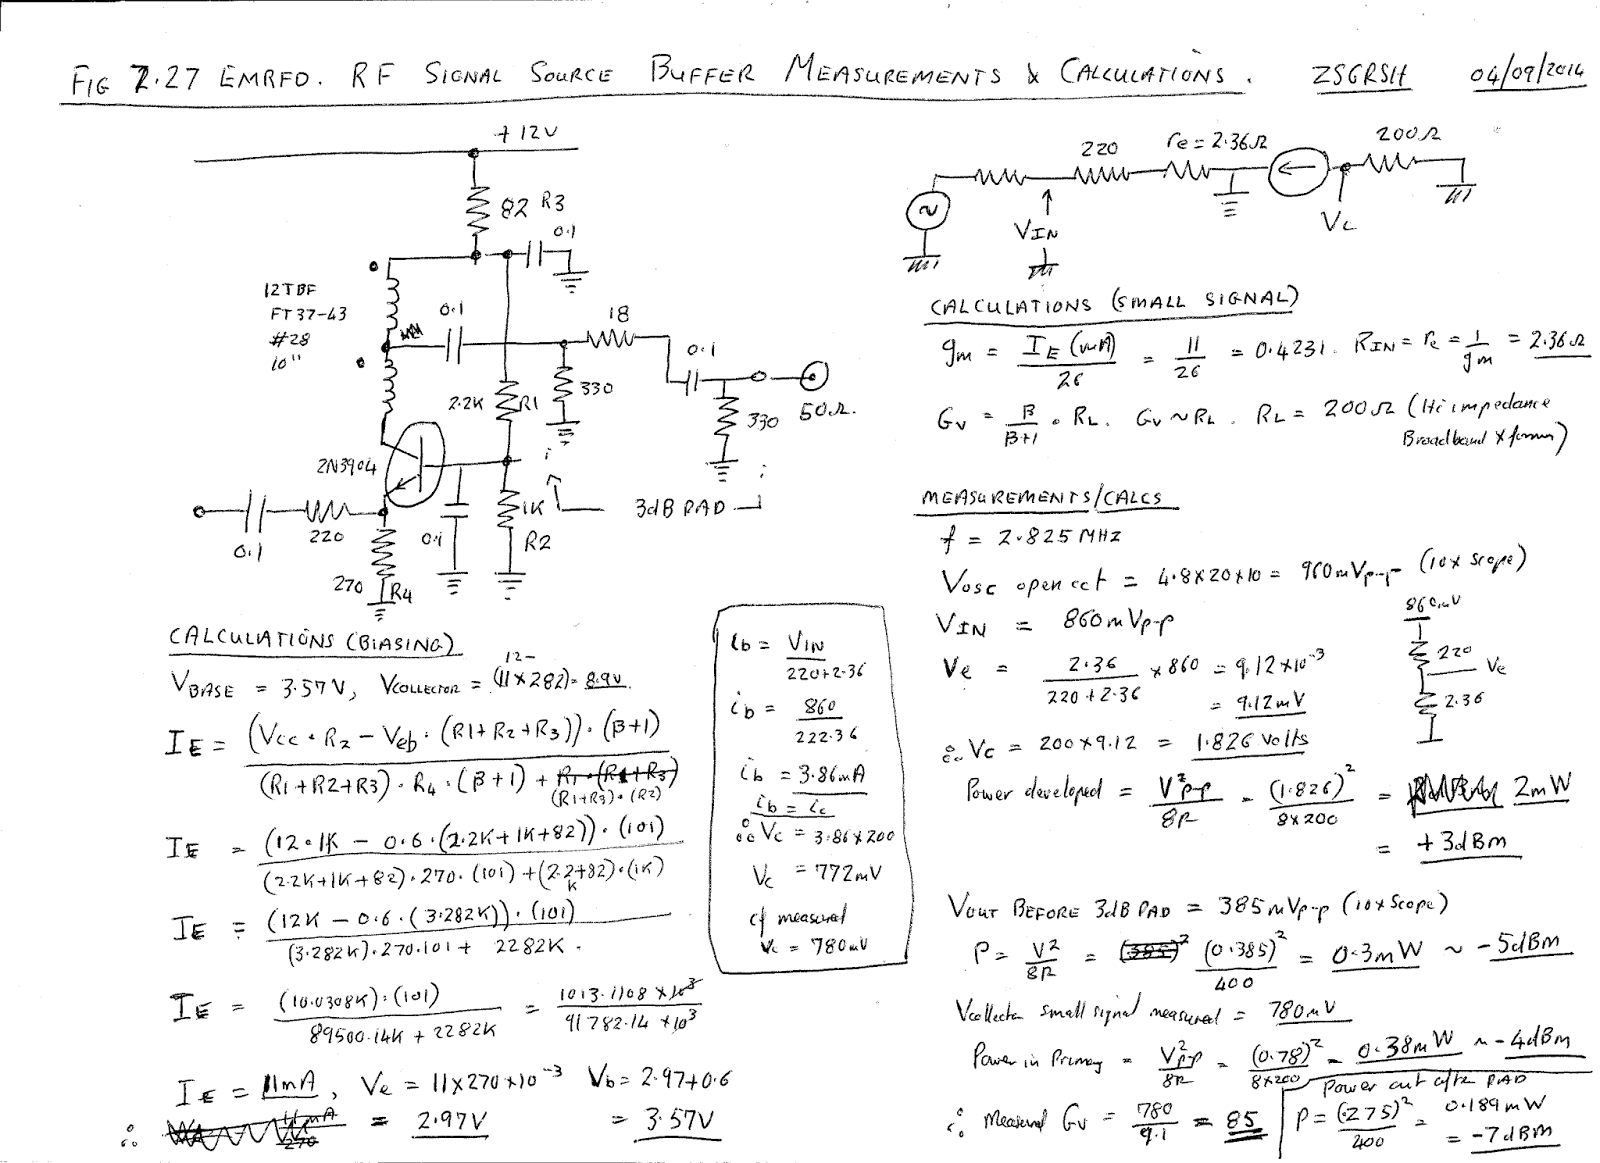 FIG 2.27 EMRFD. RF SIGNAL SOURCE BUFFER MEASUREMENTS & CALCULATIONS. ZS6RSH 04/09/2014
+12V
82 R3
0.1
12TBF
FT37-43
#28
10"
0.1
18
0.1
2.2K R1
330
330
50Ω.
2N3904
1K
R2
3dB PAD
220
0.1
0.1
270 R4
220
re = 2.36Ω
200Ω
VIN
Vc
CALCULATIONS (SMALL SIGNAL)
gm = IE (mA) / 26 = 11 / 26 = 0.4231. RIN = re = 1 / gm = 2.36Ω
Gv = β / β+1 . RL. Gv ~ RL. RL = 200Ω (Hi impedance
Broadband Xformer)
MEASUREMENTS/CALCS
f = 2.825 MHz
Vosc open cct = 4.8×20×10 = 960mVp-p (10x scope)
VIN = 860mVp-p
Ve = 2.36 / 220+2.36 × 860 = 9.12×10⁻³
= 9.12mV
860mV
220
Ve
2.36
∴ Vc = 200×9.12 = 1.826 volts
Power developed = V²p-p / 8R = (1.826)² / 8×200 = 2mW
= +3dBm
VOUT BEFORE 3dB PAD = 385mVp-p (10x Scope)
P = V² / 8R = (0.385)² / 400 = 0.3mW ~ -5dBm
Vcollector small signal measured = 780mV
Power in Primary = V²p-p / 8R = (0.78)² / 8×200 = 0.38mW ~ -4dBm
∴ Measured Gv = 780 / 9.1 = 85
Power out after PAD
P = (.275)² / 400 = 0.189mW
= -7dBm
CALCULATIONS (BIASING)
VBASE = 3.57V, VCOLLECTOR = 12-(11×282) = 8.9V
IE = (Vcc.R2 - Veb.(R1+R2+R3)).(β+1) / (R1+R2+R3).R4.(β+1) + (R1+R3).(R2)
IE = (12.1K - 0.6.(2.2K+1K+82)).(101) / (2.2K+1K+82).270.(101)+(2.2K+82).(1K)
IE = (12K - 0.6.(3.282K)).(101) / (3.282K).270.101 + 2282K.
IE = (10.0308K).(101) / 89500.14K + 2282K = 1013.1108 ×10³ / 91782.14 ×10³
IE = 11mA, Ve = 11×270×10⁻³ Vb = 2.97+0.6
∴ = 2.97V = 3.57V
ib = VIN / 220+2.36
ib = 860 / 222.36
ib = 3.86mA
ib = ic
∴ Vc = 3.86×200
Vc = 772mV
cf measured
Vc = 780mV